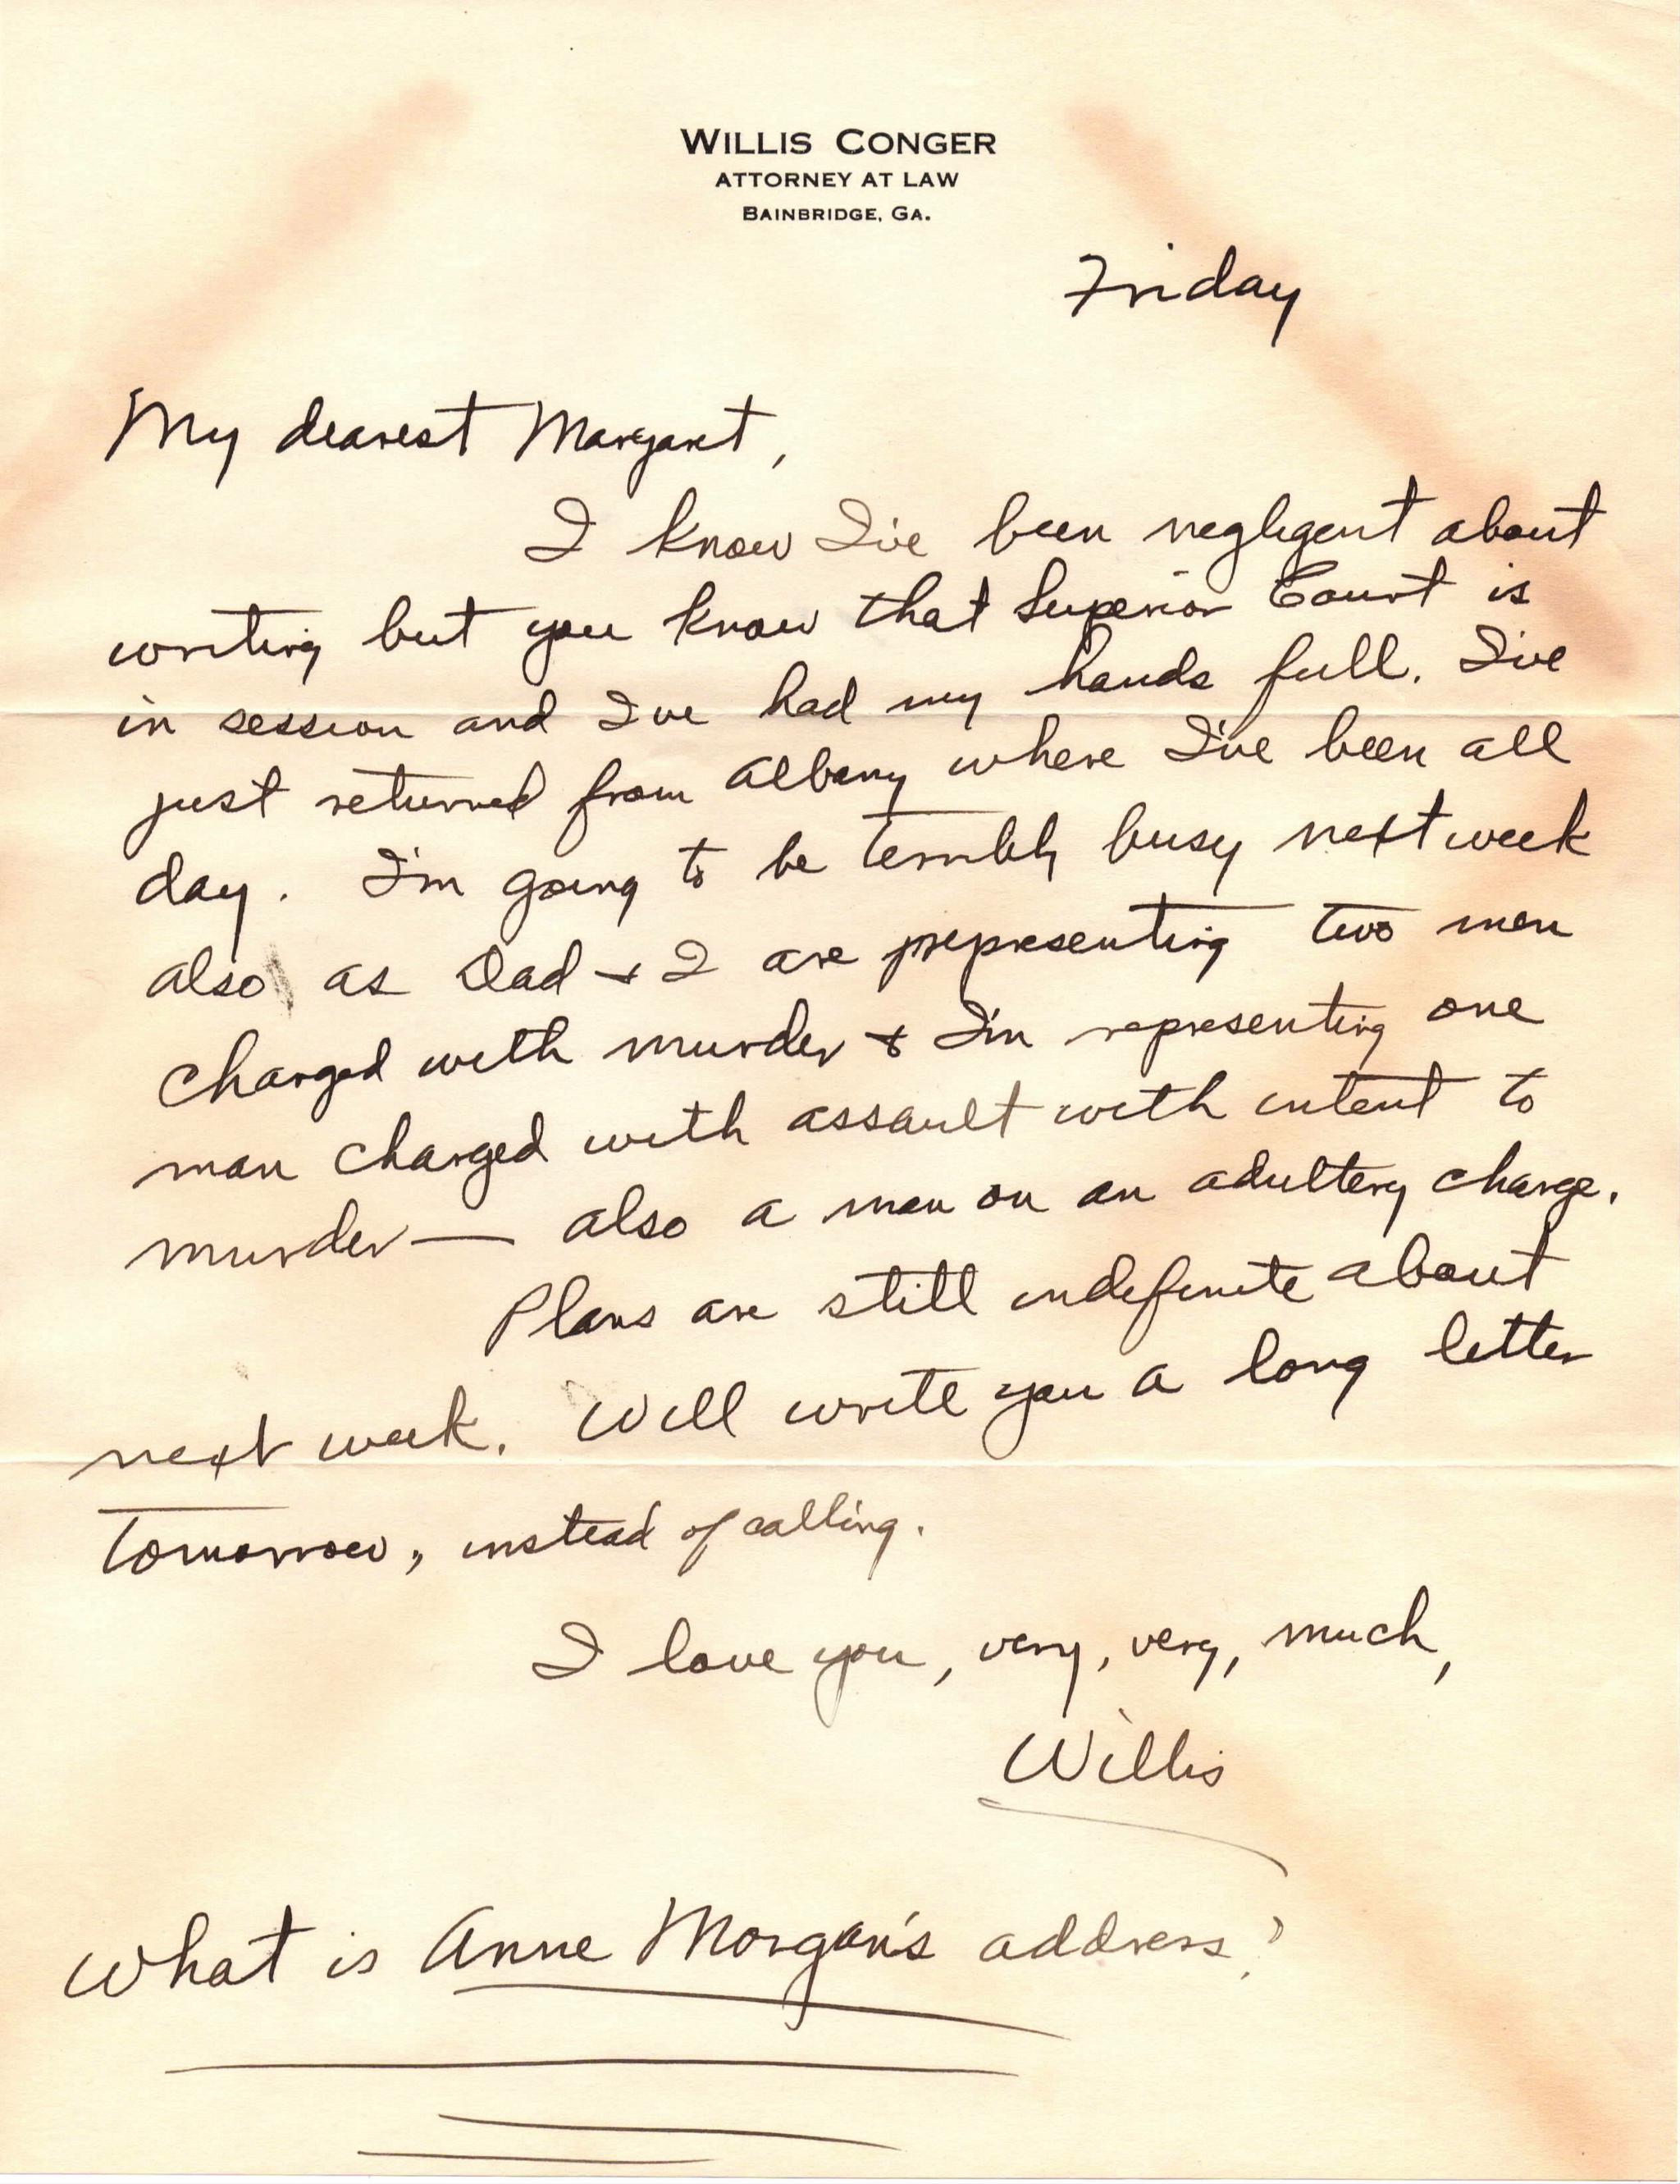 WILLIS CONGER
ATTORNEY AT LAW
BAINBRIDGE, GA.
Friday
My dearest Margaret,
I know I've been negligent about
writing but you know that Superior Court is
in session and Ive had my hands full. I've
just returned from Albany where I've been all
day. I'm going to be terribly busy next week
also as Dad & I are prepresenting two men
charged with murder & I'm representing one
man charged with assault with intent to
murder — also a man on an adultery charge.
Plans are still indefinite about
next week. Will write you a long letter
tomorrow, instead of calling.
I love you, very, very, much,
Willis
What is Anne Morgan's address?